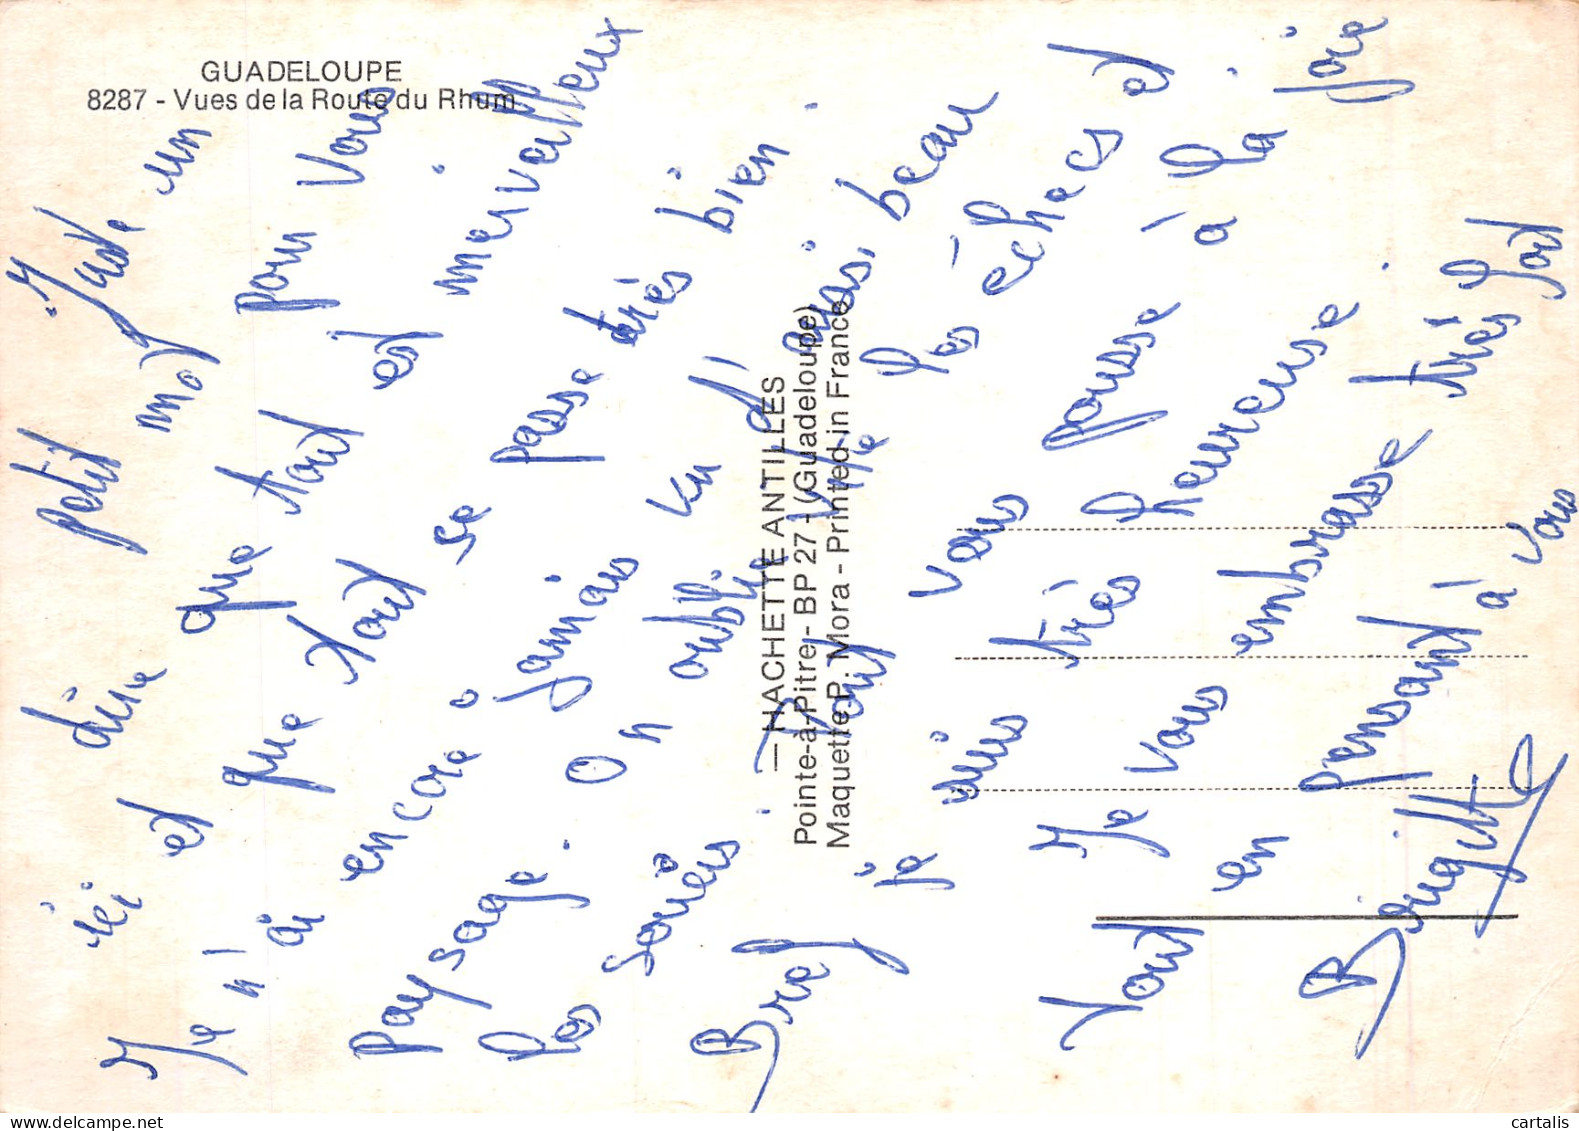 GUADELOUPE
8287 - Vues de la Route du Rhum
— HACHETTE ANTILLES
Pointe-à-Pitre - BP 27 - (Guadeloupe)
Maquette P. Mora - Printed in France
Juste un
petit mot pour vous
dire que tout est merveilleux
ici et que tout se passe très bien.
Je n'ai encore jamais vu d'aussi beau
paysage. On oublie vite les échecs et
les soucis. Tout vous pousse à la joie
Bref je suis très heureuse.
Je vous embrasse très fort
Tout en pensant à vous
Brigitte
cartalis
delcampe.net